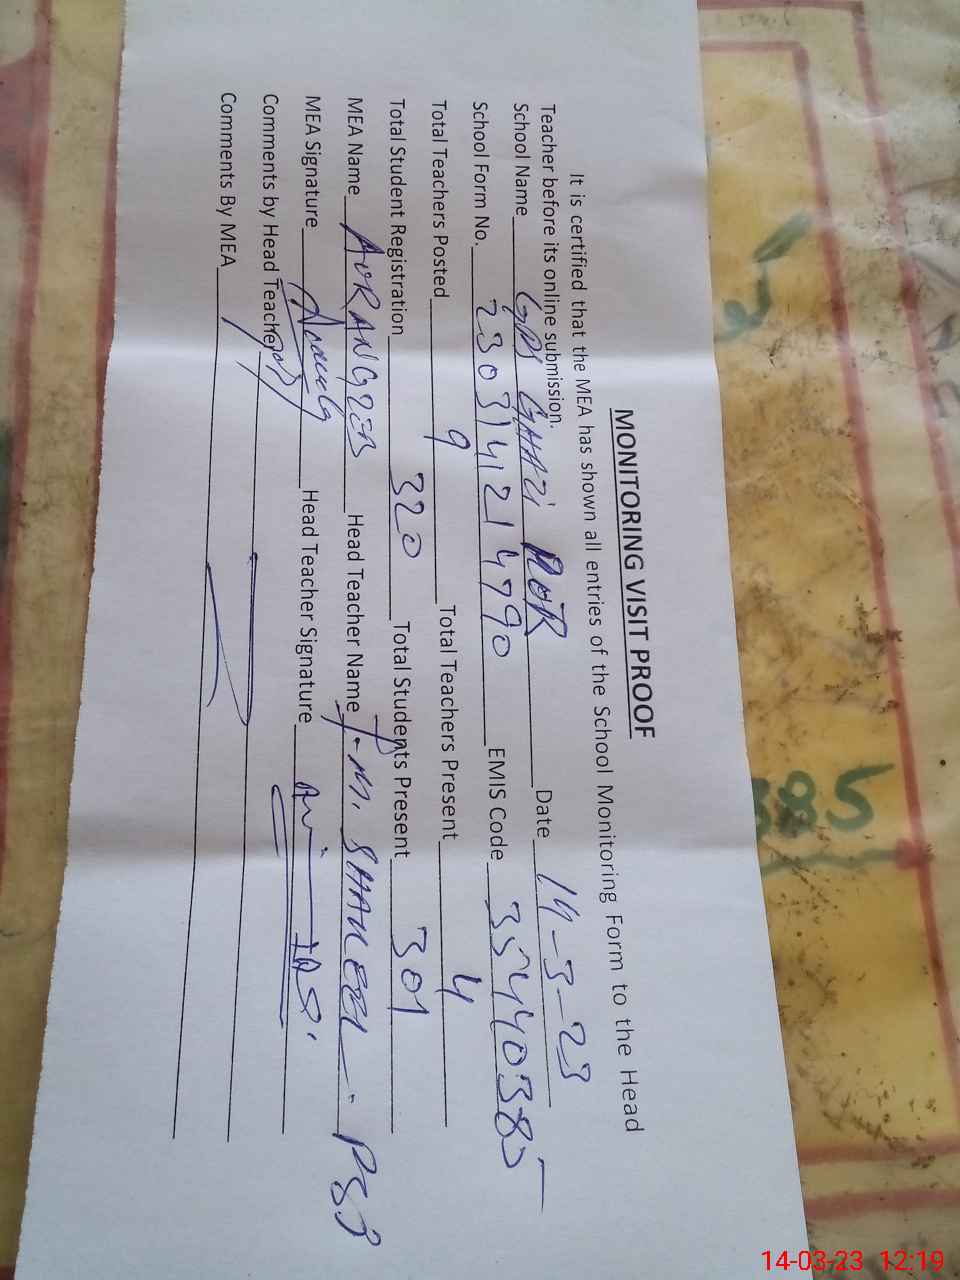 MONITORING VISIT PROOF
It is certified that the MEA has shown all entries of the School Monitoring Form to the Head
Teacher before its online submission.
School Name GPS GHAZI POR Date 14-3-23
School Form No. 2303141214790 EMIS Code 35440385
Total Teachers Posted 9 Total Teachers Present 4
Total Student Registration 320 Total Students Present 301
MEA Name AURANGZEB Head Teacher Name M. SHAKEEL PST
MEA Signature Head Teacher Signature
Comments by Head Teacher
Comments By MEA
385
14-03-23 12:19